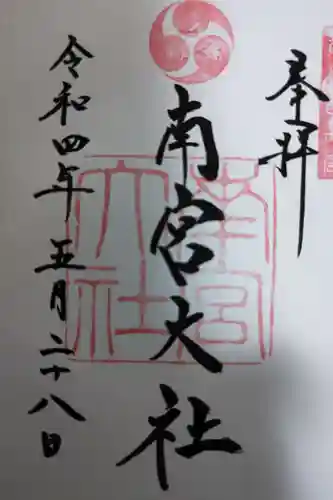 奉拝
南宮大社
令和四年五月二十八日
南宮
大社